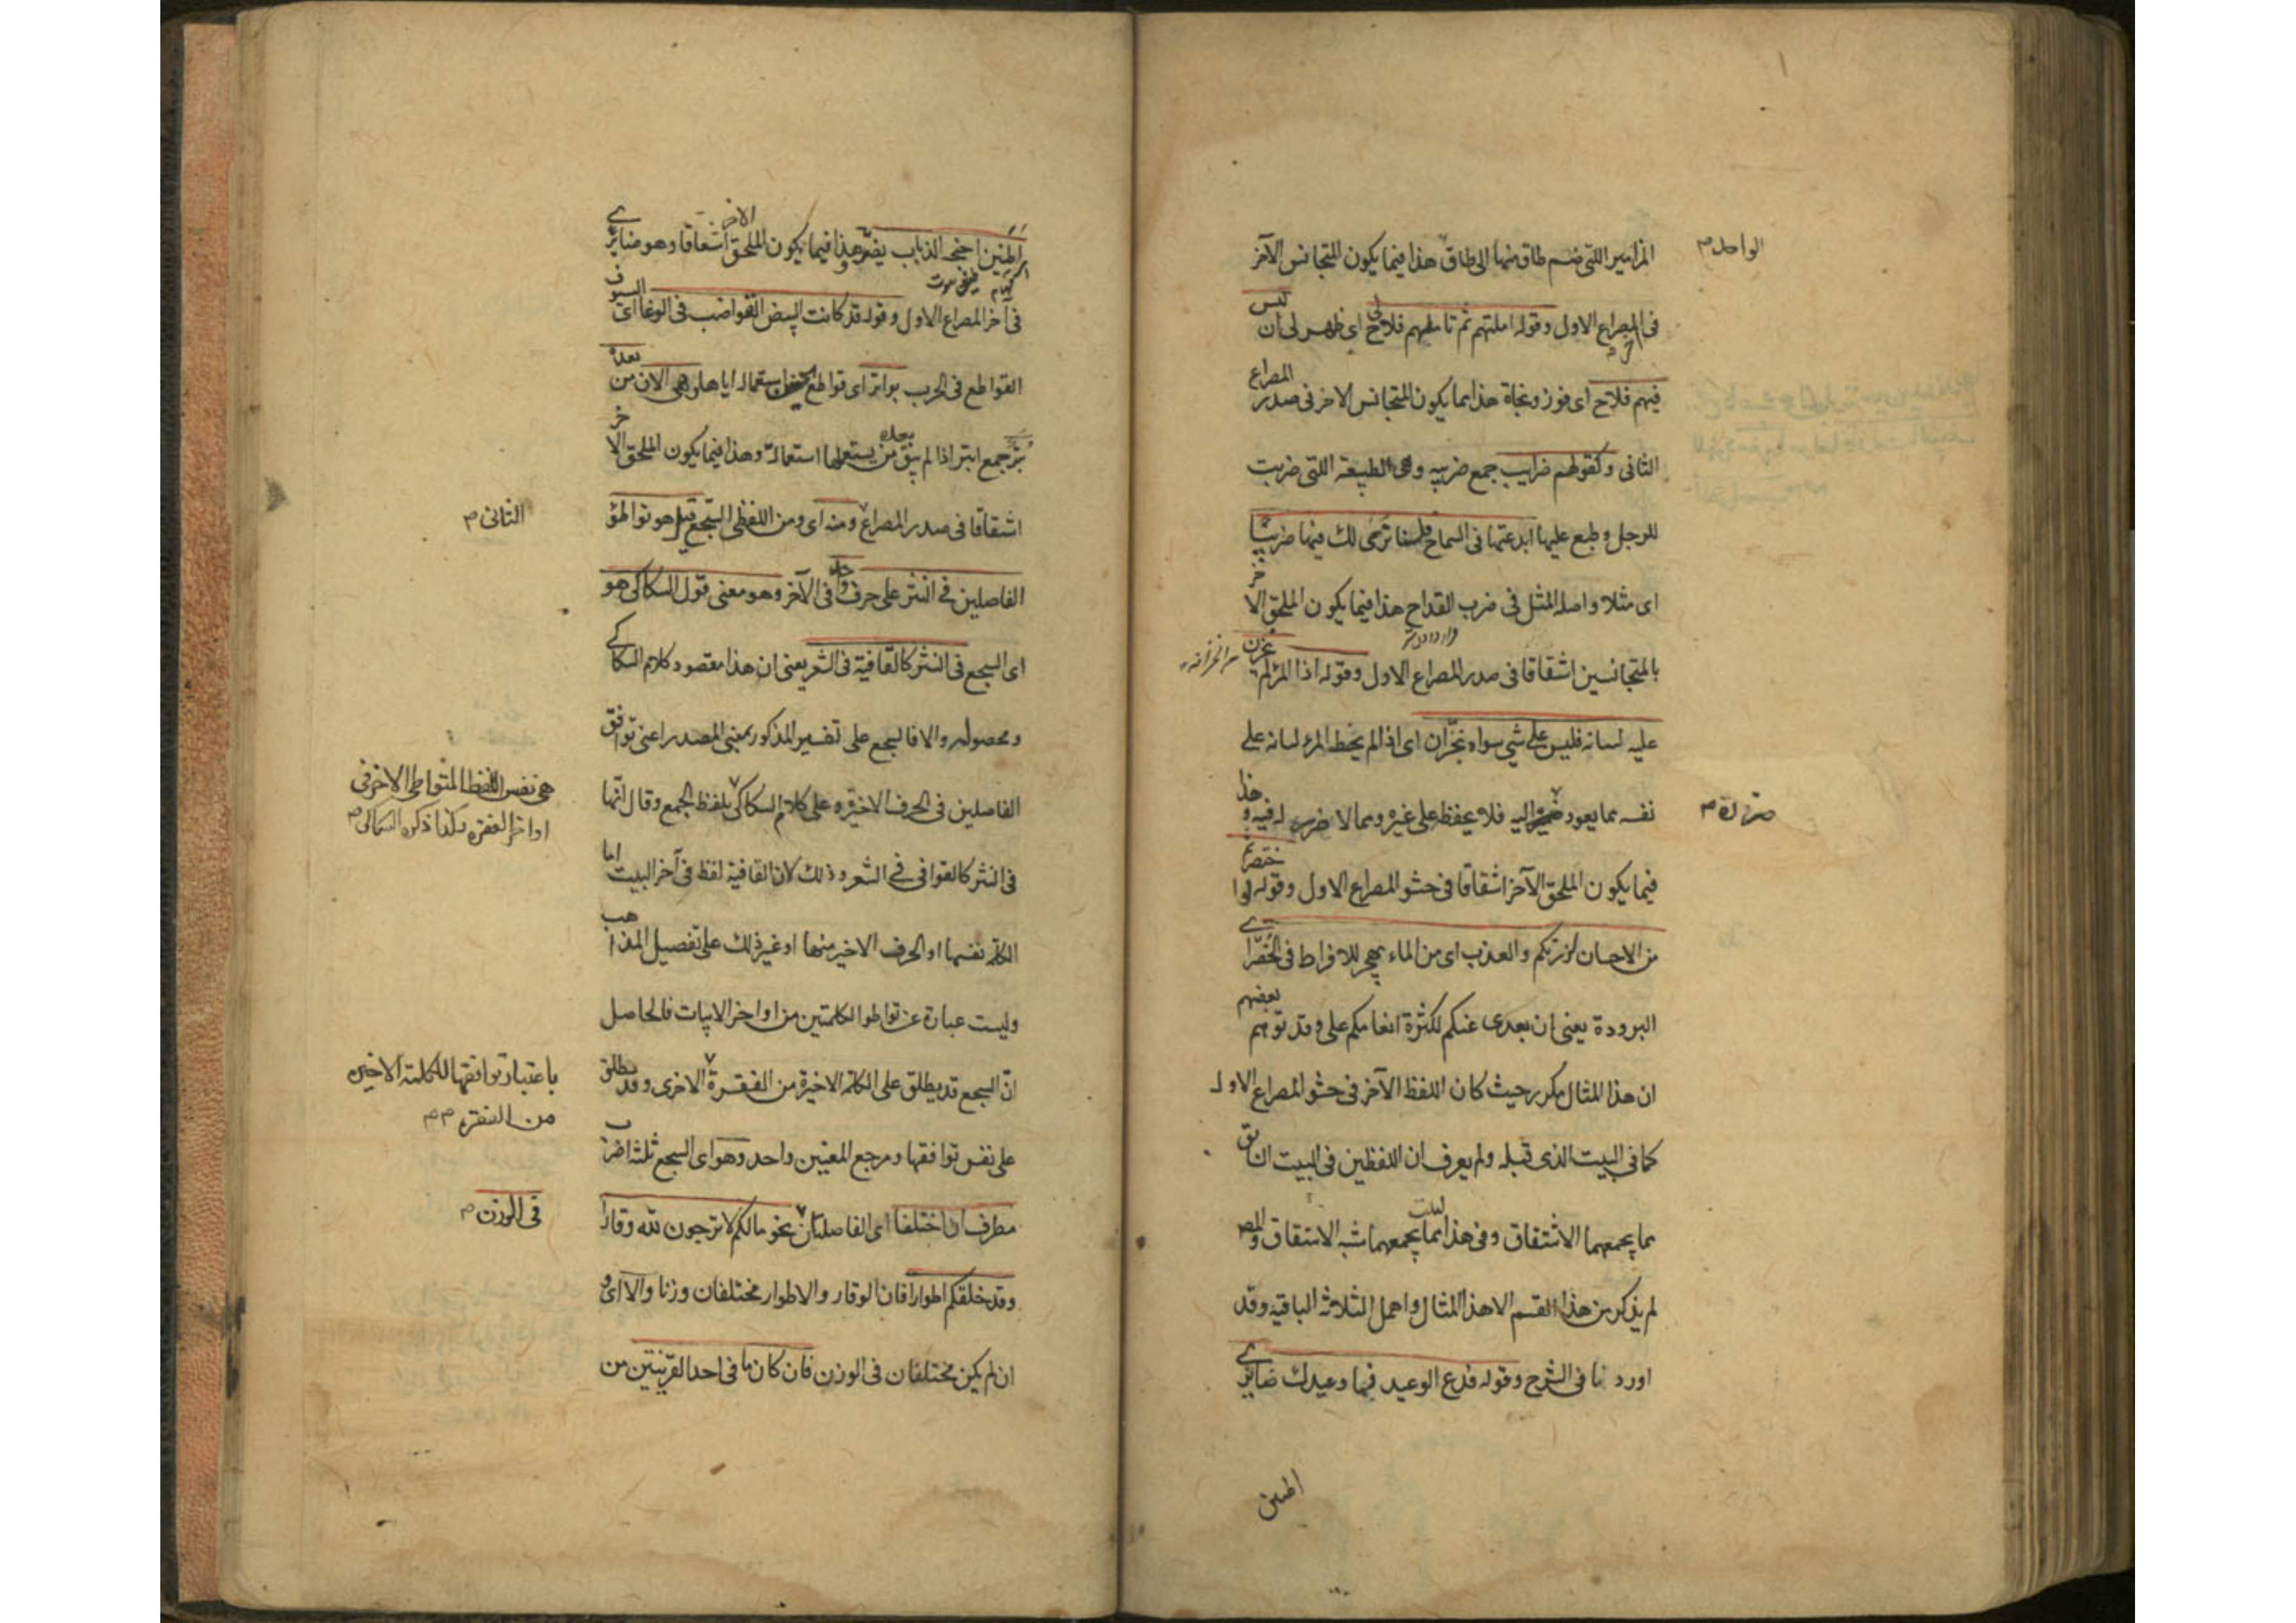 المزامير اللتى ضم طاق منها الى طاق هذا فيما يكون المتجانس الآخر
الواحد م
فى المصراع الاول وقوله املتهم ثم تاملتهم فلاح لى اى ظهر لى ان ليس
فيهم فلاح اى فوز ونجاة هذا بما يكون المتجانس الاخر فى صدر المصراع
الثانى وكقولهم ضرايب جمع ضريبه وهى الطبيعة اللتى ضربت
للرجل وطبع عليها ابدعتها فى السماح فلسنا نرى لك فيها ضريبا
اى مثلا واصله المثل فى ضرب القداح هذا فيما يكون الملحق الاخر
بالمتجانسين اشتقاقا فى صدر المصراع الاول وقوله اذا المرء لم يخزن
عليه لسانه فليس على شى سواه بخزان اى اذا لم يحفظ المرء لسانه على
نفسه مما يعود اليه فلا يحفظ على غيره ومما لا ضرر له فيه وهذا
ضرره م
فيما يكون الملحق الآخر اشتقاقا فى حشو المصراع الاول وقوله لو اختصرتم
من الاحسان لزرتكم والعذب اى من الماء يهجر للافراط فى الخصر اى
البرودة يعنى ان بعدى عنكم لكثرة انعامكم على وقد توهم بعضهم
ان هذا المثال مكرر حيث كان اللفظ الآخر فى حشو المصراع الاول
كما فى البيت الذى قبله ولم يعرف ان اللفظين فى البيت السابق
مما يجمعهما الاشتقاق وفى هذا البيت مما يجمعهما شبه الاشتقاق والمص
لم يذكر من هذا القسم الا هذا المثال واهمل الثلاثة الباقيه وقد
اوردنا فى الشرح وقوله فدع الوعيد فيما وعيدك ضايرى
اطنين
اطنين اجنحه الذباب يضير وهذا فيما يكون الملحق الاخر اشتقاقا وهو ضايرى
فى آخر المصراع الاول وقوله قد كانت البيض القواضب فى الوغا اى السيوف
القواطع فى الحرب بواتر اى قواطع استعماله اياها وهى الان من بعده
بتر جمع ابتر اذا لم يبق من بعده يستعملها استعماله وهذا فيما يكون الملحق الاخر
اشتقاقا فى صدر المصراع ومنه اى ومن اللفظى السجع قيل هو تواطؤ
الثانى م
الفاصلين فى النثر على حرف واحد فى الآخر وهو معنى قول السكاكى هو
اى السجع فى النثر كالقافية فى الشعر يعنى ان هذا مقصود كلام السكاكى
ومحصوله والا فالسجع على تفسير المذكور بمعنى المصدر اعنى توافق
الفاصلين فى الحرف الاخيره وعلى كلام السكاكى بلفظ الجمع وقال انها
هى نفس اللفظ المتواطى الاخر فى
اواخر الفقره ولذا ذكره السكاكى م
فى النثر كالقوافى فى الشعر وذلك لان القافية لفظ فى آخر البيت اما
الكلمه نفسها او الحرف الاخير منها او غير ذلك على تفصيل المذاهب
وليست عبارة عن تواطوا الكلمتين من اواخر الابيات فالحاصل
انّ السجع قد يطلق على الكلمه الاخيرة من الفقرة الاخرى وقد يطلق
باعتبار توافقها للكلمة الاخيره
من الفقره م م
على نفس توافقها ومرجع المعنيين واحد وهو اى السجع ثلثه اضرب
مطرف ان اختلفا اى الفاصلتان نحو مالكم لا ترجون لله وقارا
فى الوزن م
وقد خلقكم اطوارا فان الوقار والاطوار مختلفان وزنا والا اى و
ان لم يكن مختلفان فى الوزن فان كان ما فى احد القرينتين من